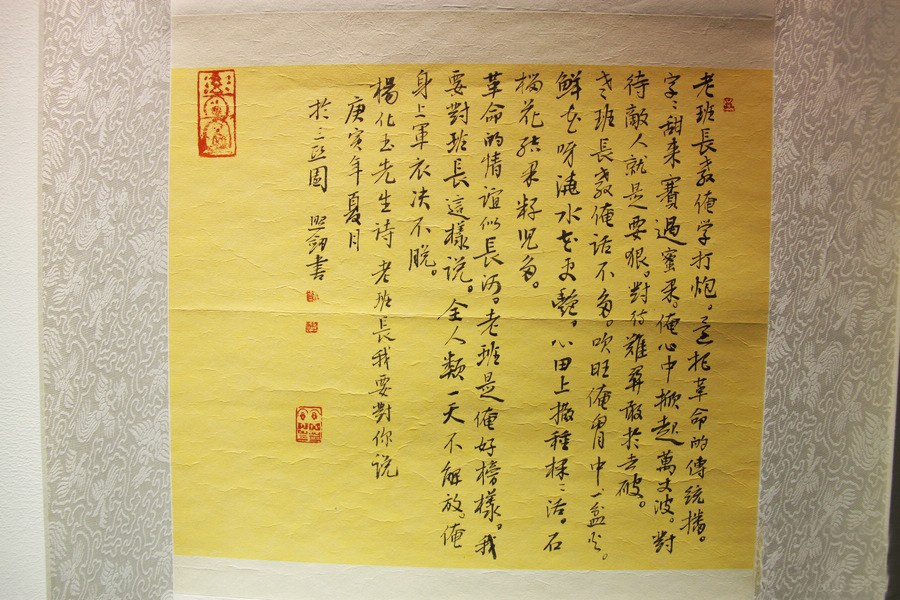 老班長教俺学打炮。還把革命的傳統播。
字字甜来賽過蜜果。俺心中掀起萬丈波。對
待敵人就是要狠。對待難弄敢於去破。
老班長教俺话不多。吹旺俺胃中一盆火。
鮮花呀澆水花更艷。心田上撒種棵棵活。石
榴花结果籽児多。
革命的情誼似長河。老班是俺好榜樣。我
要對班長這樣说。全人類一天不解放。俺
身上軍衣决不脱。
楊化玉先生诗 老班長我要對你说
庚寅年夏月
於三